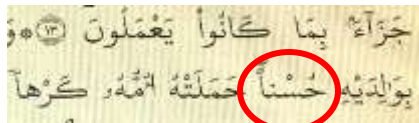 جَزَآءَۢ بِمَا كَانُواْ يَعْمَلُونَ ۝١٣ ۞ وَ
بِوَٰلِدَيْهِ حُسْناً حَمَلَتْهُ اُمُّهُۥ كَرْهاً